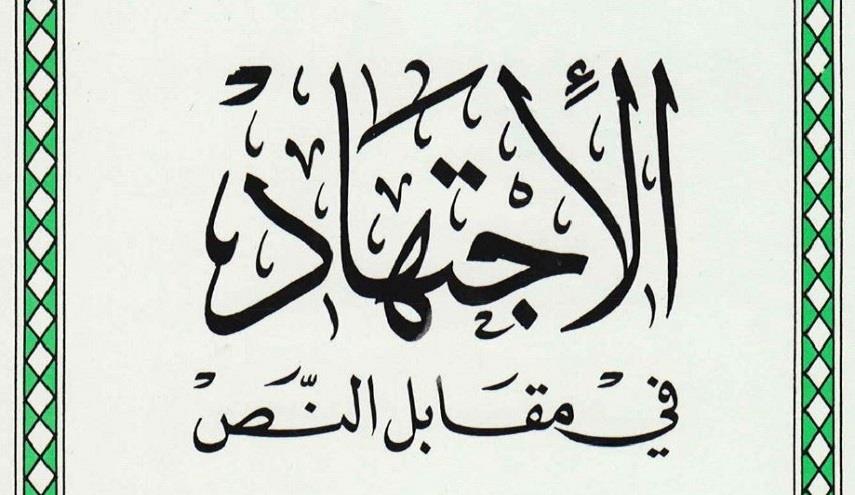 الإجْتهَادْ
في مقَابل النَّصْ